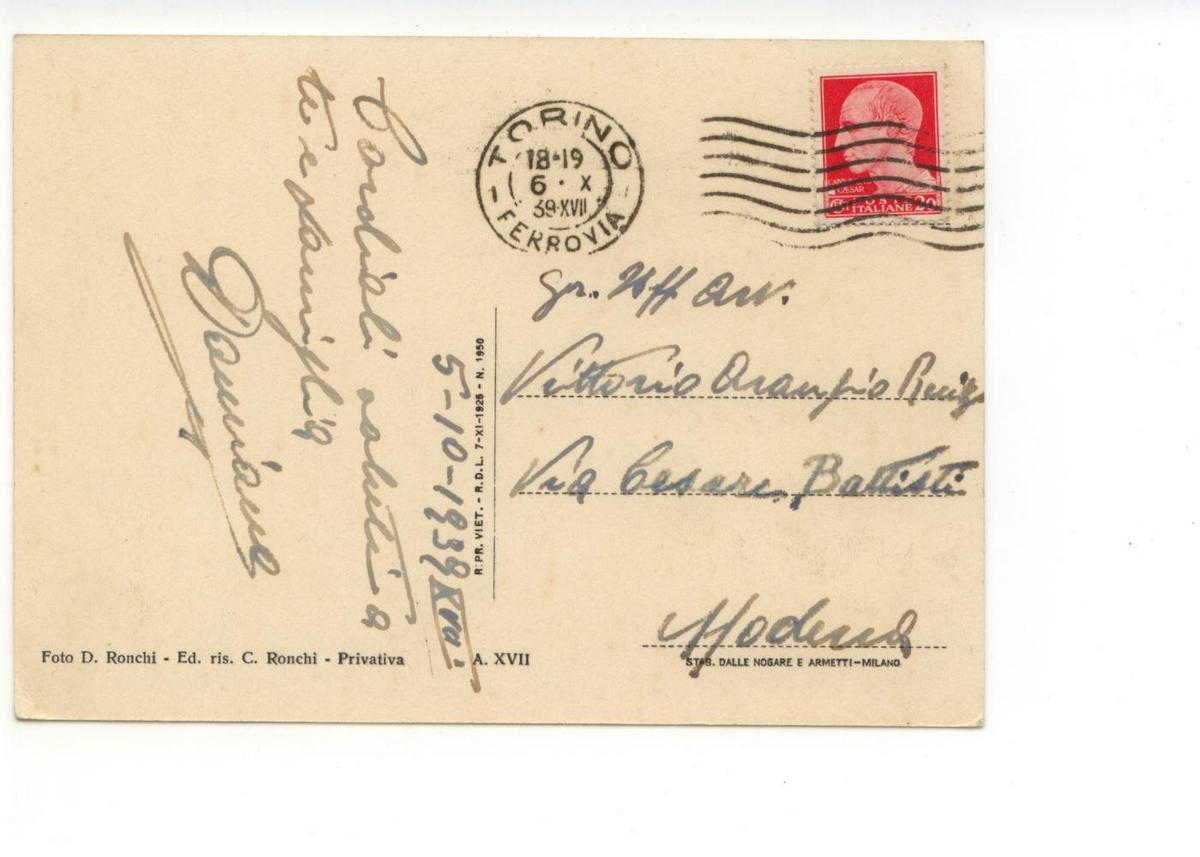 Cordiali saluti a
te e famiglia
Damiano
5-10-1939 XVII
R. PR. VIET. - R.D.L. 7-XI-1925 - N. 1950
TORINO
18-19
6 · X
39·XVII
FERROVIA
CAESAR
POSTE
ITALIANE 20
Gr. Uff Avv.
Vittorio Arangio Ruiz
Via Cesare Battisti
Modena
Foto D. Ronchi - Ed. ris. C. Ronchi - Privativa
A. XVII
STAB. DALLE NOGARE E ARMETTI-MILANO